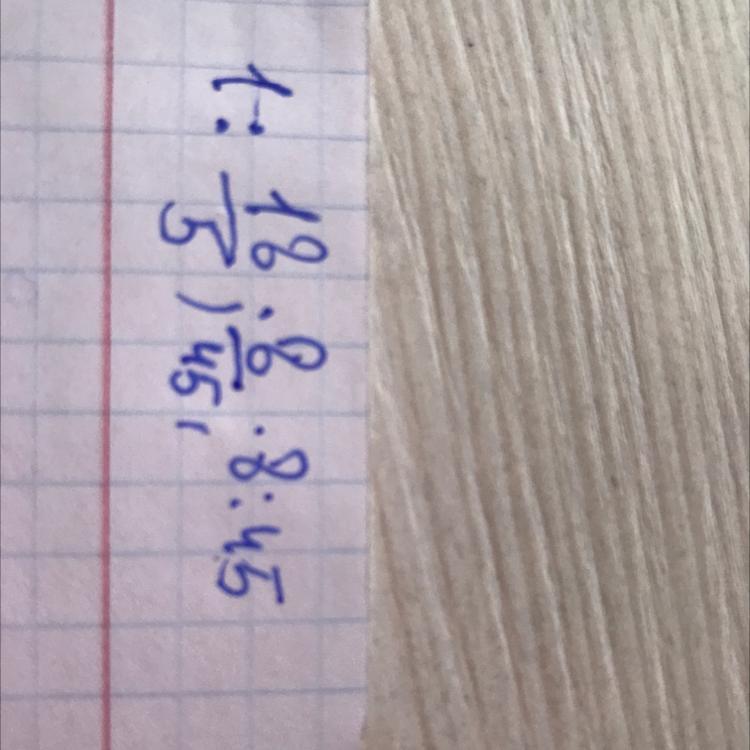 1: 18/5; 8/45; 8:45